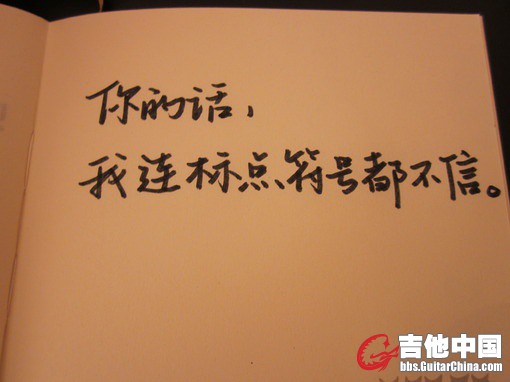 你的话，
我连标点符号都不信。
吉他中国
bbs.GuitarChina.com